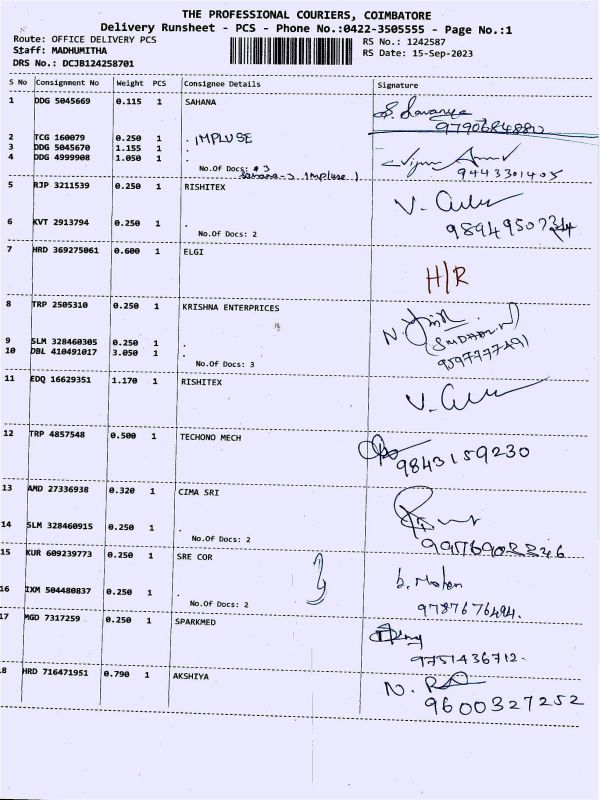 THE PROFESSIONAL COURIERS, COIMBATORE
Delivery Runsheet - PCS - Phone No.:0422-3505555 - Page No.:1
Route: OFFICE DELIVERY PCS RS No.: 1242587
Staff: MADHUMITHA RS Date: 15-Sep-2023
DRS No.: DCJB124258701
S No Consignment No Weight PCS Consignee Details Signature
1 DDG 5045669 0.115 1 SAHANA
9790684880
2 TCG 160079 0.250 1 . IMPLUSE
3 DDG 5045670 1.155 1 .
4 DDG 4999908 1.050 1 .
No.Of Docs: 3
9443301405
5 RJP 3211539 0.250 1 RISHITEX
V.
6 KVT 2913794 0.250 1 .
No.Of Docs: 2
7 HRD 369275061 0.600 1 ELGI
H/R
8 TRP 2505310 0.250 1 KRISHNA ENTERPRICES
N.
9 SLM 328460305 0.250 1 .
10 DBL 410491017 3.050 1 .
No.Of Docs: 3
9597777491
11 EDQ 16629351 1.170 1 RISHITEX
V.
12 TRP 4857548 0.500 1 TECHONO MECH
9843159230
13 AMD 27336938 0.320 1 CIMA SRI
14 SLM 328460915 0.250 1 .
No.Of Docs: 2
15 KUR 609239773 0.250 1 SRE COR
16 IXM 504480837 0.250 1 .
No.Of Docs: 2
9787676494.
17 MGD 7317259 0.250 1 SPARKMED
9751436712.
8 HRD 716471951 0.790 1 AKSHIYA
N.
9600327252